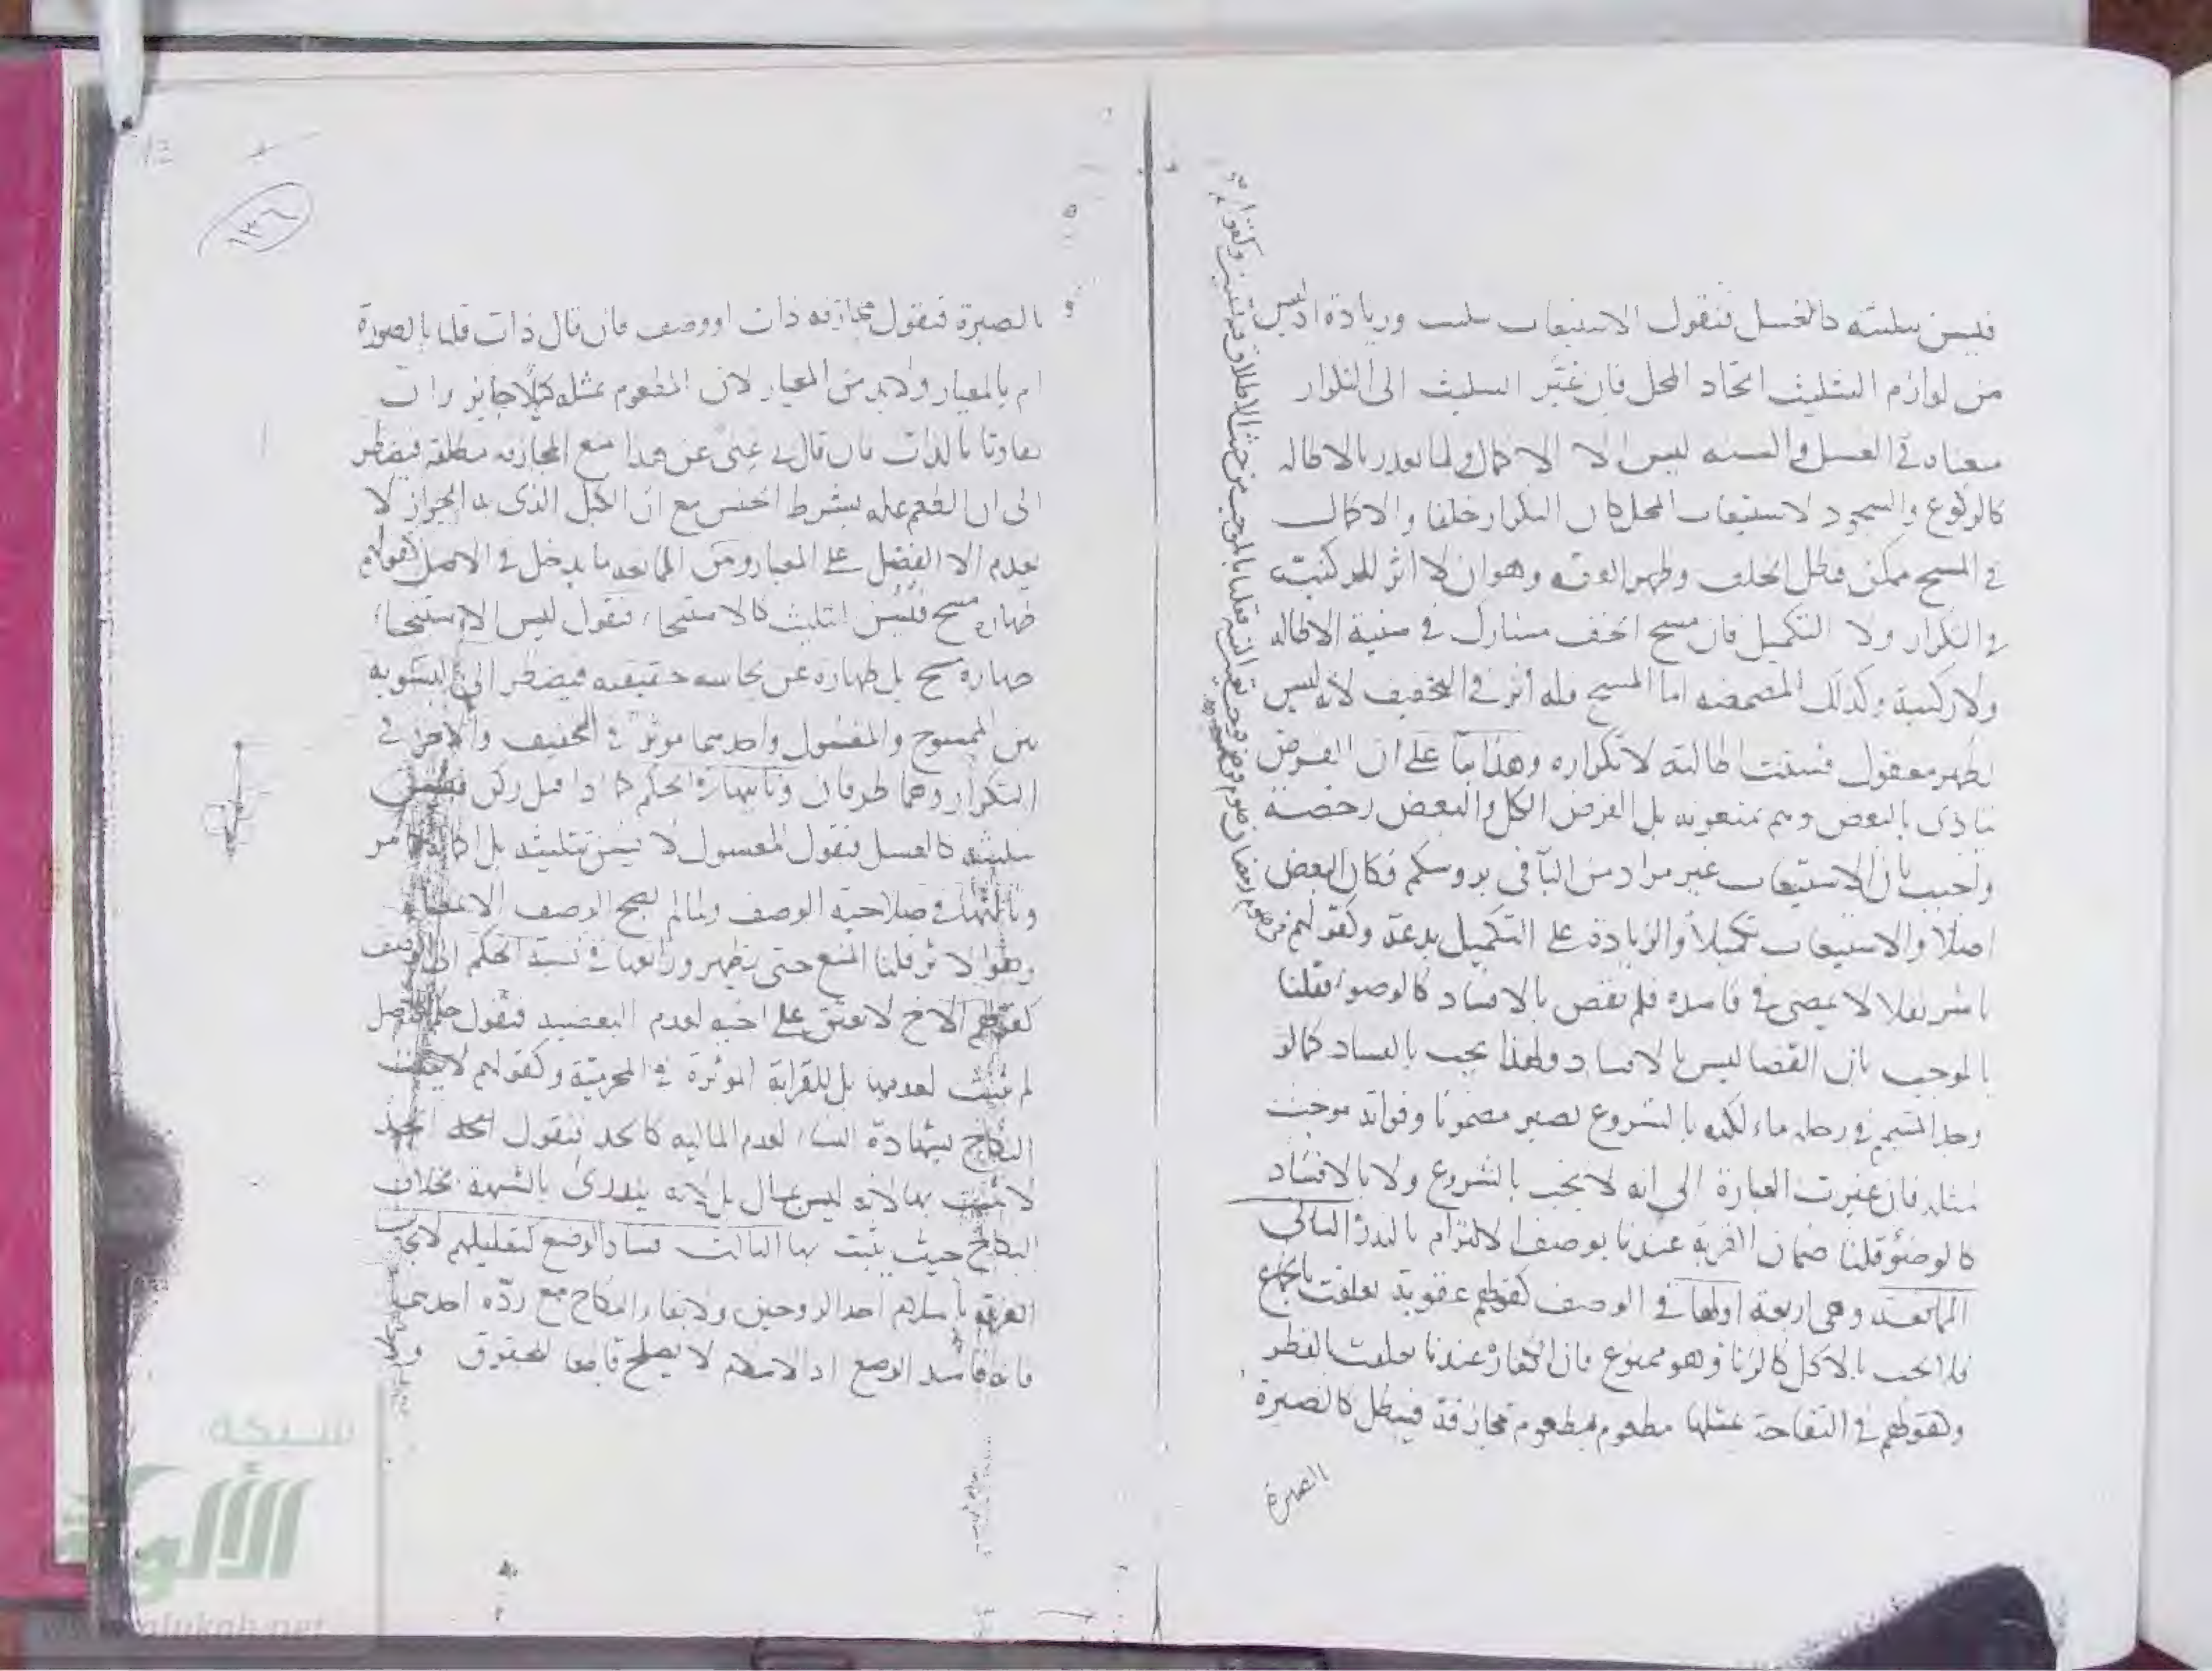 فيسن تثليثه كالغسل فنقول الاستيعاب تثليث وزيادة اذ ليس
من لوازم التثليث اتحاد المحل فان غير التثليث الى التكرار
معناه في الغسل والسنة ليس الا الاكمال ولما تعذر بالاطالة
كالركوع والسجود لاستيعاب المحل كان التكرار خلفا والاكمال
في المسح ممكن فبطل الخلف وظهر الفرق وهو ان لا اثر للركنية
في التكرار ولا التكميل فان مسح الخف مشارك في سنية الاطالة
ولا ركنية وكذلك المضمضة اما المسح فله اثر في التخفيف لانه ليس
تطهير معقول فسنت اطالته لا تكراره وهذا بنا على ان الفرض
يتادى بالبعض وهم يمنعونه بل الفرض الكل والبعض رخصة
واجيب بان الاستيعاب غير مراد من البآ في بروسكم فكان البعض
اصلا والاستيعاب تكميلا والزيادة على التكميل بدعة وكقولهم
باشر نفلا لا يمضى في فاسده فلم يقض بالافساد كالوضوء فقلنا
بالموجب بان القضا ليس بالافساد ولهذا يجب بالفساد كما لو
وجد المتيمم في رحله ماء لكنه بالشروع يصير مضمونا وفواته موجب
مثله فان غيرت العبارة الى انه لا يجب بالشروع ولا بالافساد
كالوضؤ قلنا ضمان القربة عندنا بوصف الالتزام بالنذر الثاني
الممانعة وهي اربعة اولها في الوصف كقولهم عقوبة تعلقت بالجماع
فلا تجب بالاكل كالزنا وهو ممنوع فان الكفارة عندنا تعلقت بالفطر
وكقولهم في التفاحة بمثلها مطعوم بمطعوم مجازفة فيبطل كالصبرة
الصبرة
١٣٦
بالصبرة فنقول مجازفة ذات او وصف فان قال ذات قلنا بالصورة
ام بالمعيار ولابد من المعيار لان المطعوم بمثله كيلا جايز وان
تفاوتا بالذات فان قال لي غنى عن هذا منع المجازفة مطلقة فيضطر
الى ان الطعم علة بشرط الجنس مع ان الكيل الذى به الجواز لا
يعدم الا الفضل على المعيار ومن الممانعة ما يدخل في الاصل كقولهم
طهارة مسح فيسن التثليث كالاستنجاء فنقول ليس الاستنجاء
طهارة مسح بل طهارة عن نجاسة حقيقية فيضطر الى التسوية
بين الممسوح والمغسول واحدهما موثر في التخفيف والآخر في
التكرار وهما طرفان وثالثها في الحكم كما اذا قيل ركن فيسن
تثليثه كالغسل فنقول المغسول لا يسن تثليثه بل اكماله
صلاحية الوصف ولما لم يصح الوصف الا بمعناه
وهو الاثر قلنا المنع حتى يظهر ورابعها في نسبة الحكم الى الوصف
كقولهم الاخ لا يعتق على اخيه لعدم البعضية فنقول حكم الاصل
لم يثبت لعدمها بل للقرابة الموثرة في المحرمية وكقولهم لا يثبت
النكاح بشهادة النساء لعدم المالية كالحد فنقول الحد
لا يثبت بها لانه ليس بمال بل لانه يندرئ بالشبهة بخلاف
النكاح حيث يثبت بها الثالث فساد الوضع كتعليلهم لايجاب
الفرقة باسلام احد الزوجين ولابقاء النكاح مع ردة احدهما
فانه فاسد الوضع اذ الاسلام لا يصلح قاطعا للحقوق ولا
شبكة
الألوكة
www.alukah.net